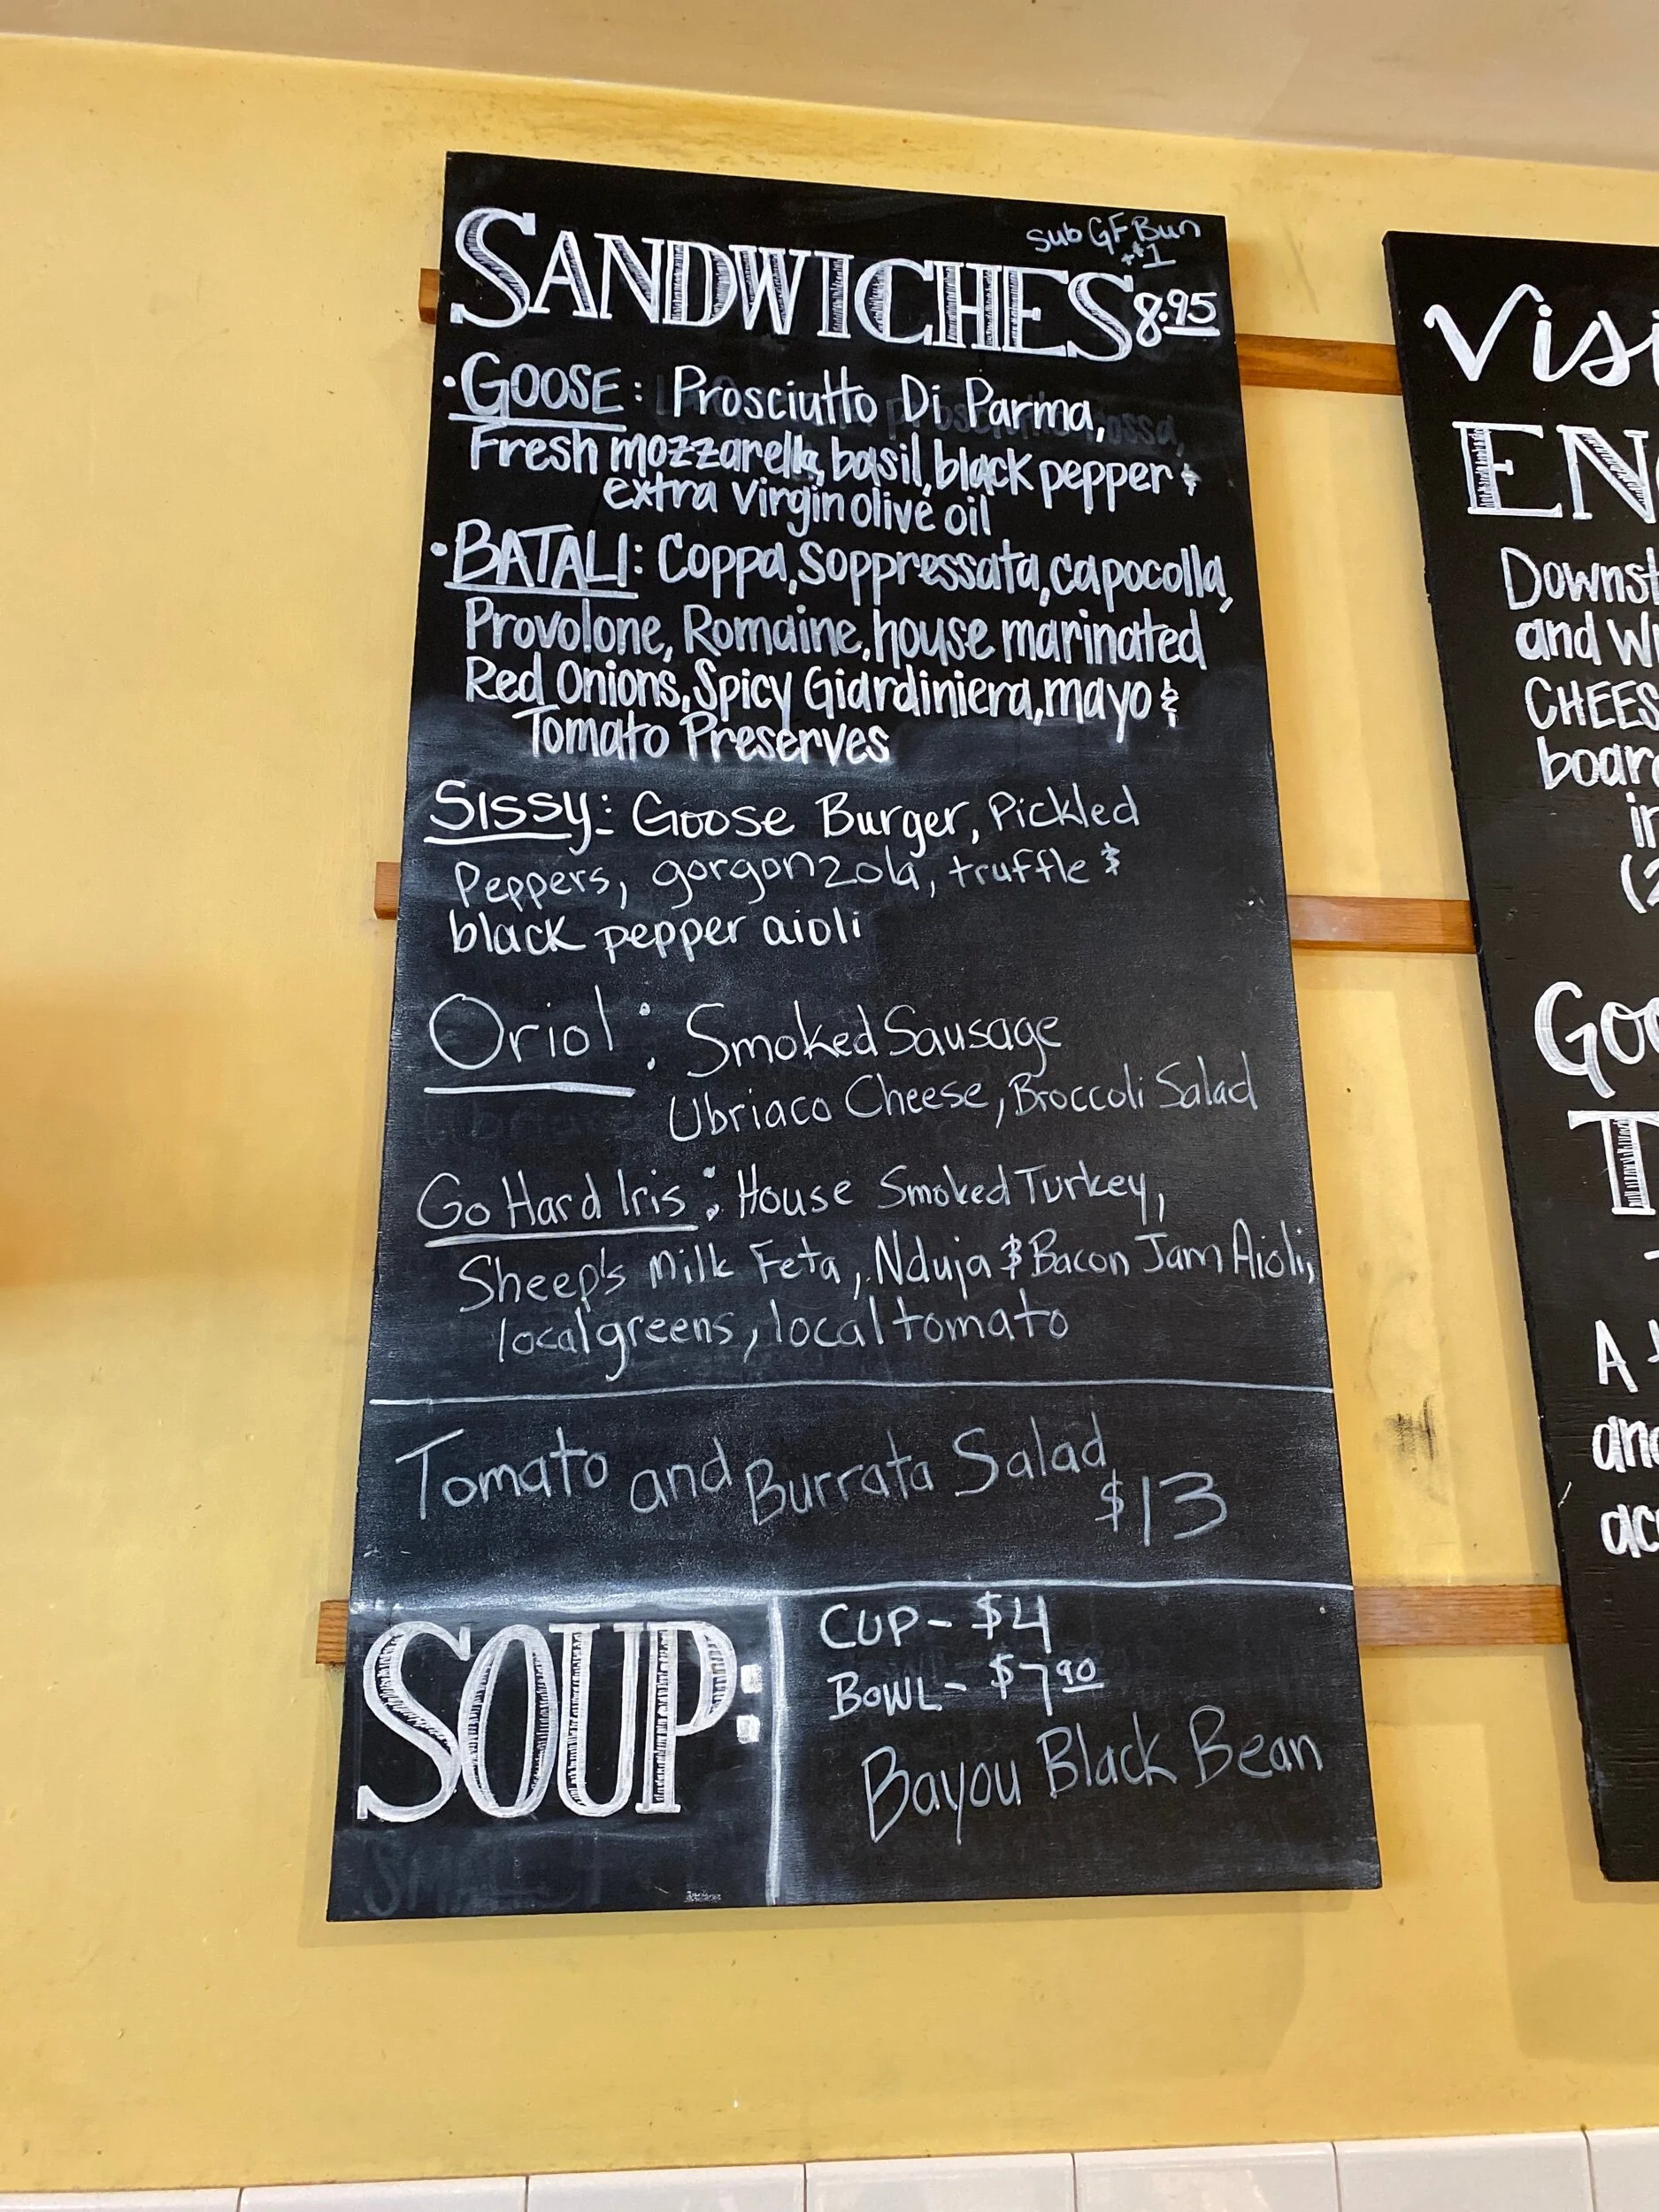 sub GF Bun
+$1
SANDWICHES 8.95
·GOOSE: Prosciutto Di Parma,
Fresh mozzarella, basil, black pepper &
extra virgin olive oil
·BATALI: Coppa, Soppressata, capocolla,
Provolone, Romaine, house marinated
Red Onions, Spicy Giardiniera, mayo &
Tomato Preserves
Sissy: Goose Burger, Pickled
Peppers, gorgonzola, truffle &
black pepper aioli
Oriol: Smoked Sausage
Ubriaco Cheese, Broccoli Salad
Go Hard Iris: House Smoked Turkey,
Sheep's Milk Feta, Nduja & Bacon Jam Aioli,
local greens, local tomato
Tomato and Burrata Salad
$13
SOUP:
CUP- $4
BOWL- $7.90
Bayou Black Bean
Visi
EN
Downst
and Wi
CHEES
board
in
(2
Goo
T
A
and
acc